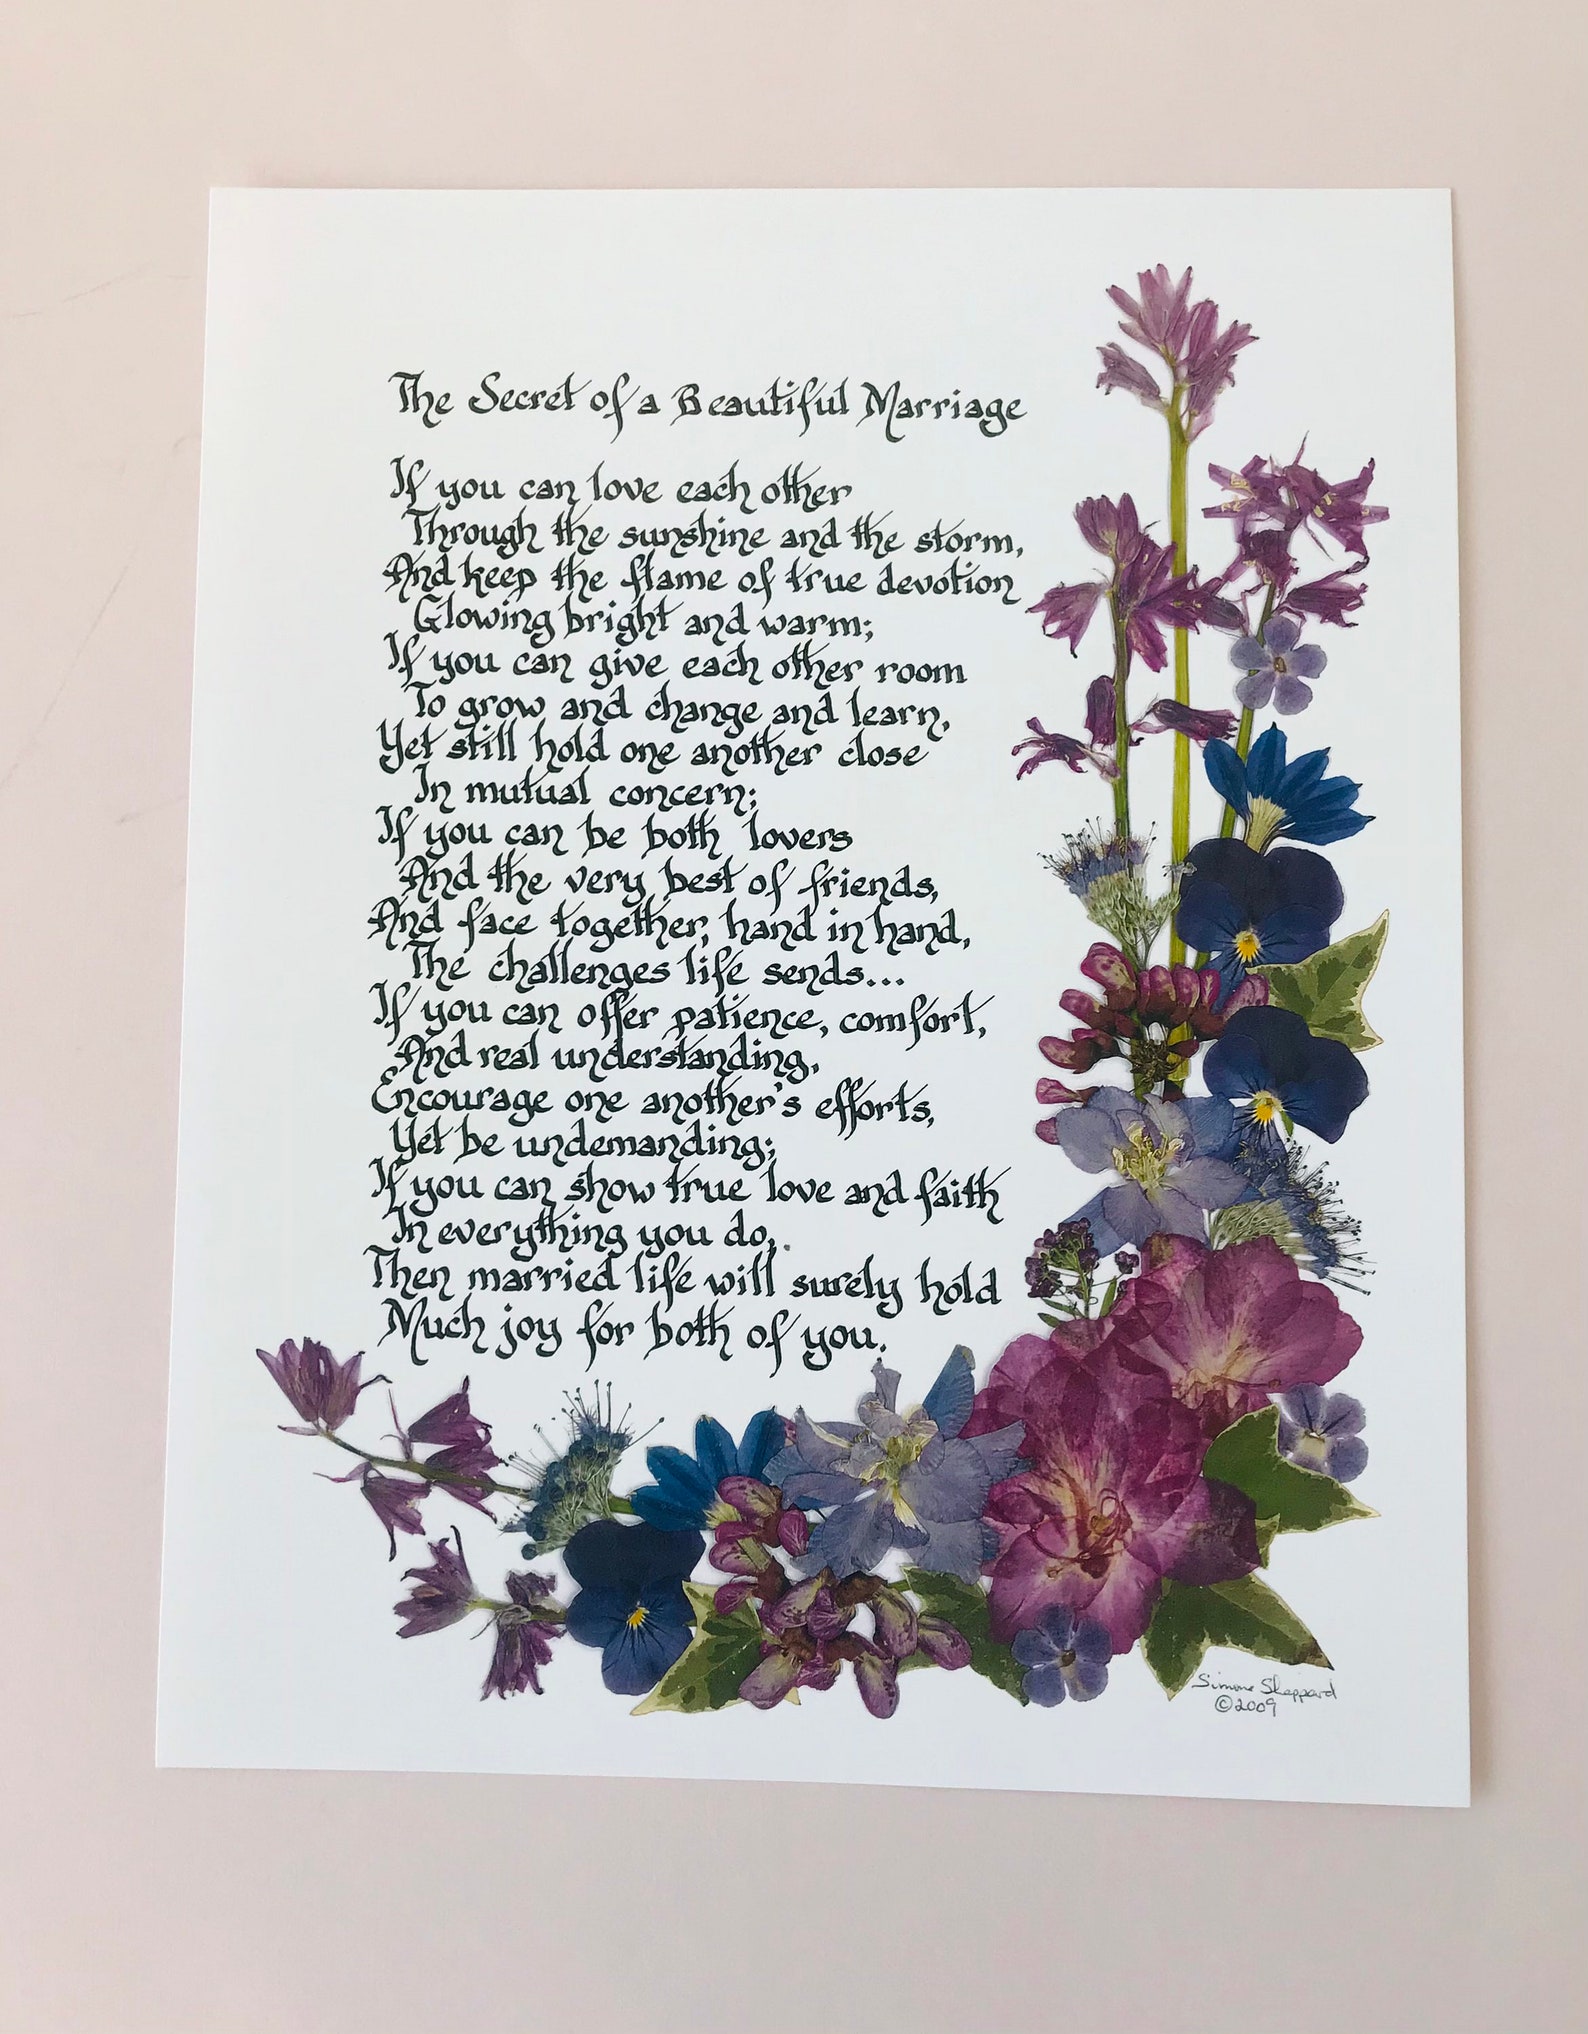 The Secret of a Beautiful Marriage
If you can love each other
Through the sunshine and the storm,
And keep the flame of true devotion
Glowing bright and warm;
If you can give each other room
To grow and change and learn,
Yet still hold one another close
In mutual concern;
If you can be both lovers
And the very best of friends,
And face together, hand in hand,
The challenges life sends...
If you can offer patience, comfort,
And real understanding,
Encourage one another's efforts,
Yet be undemanding;
If you can show true love and faith
In everything you do,
Then married life will surely hold
Much joy for both of you.
Simone Sheppard
©2009